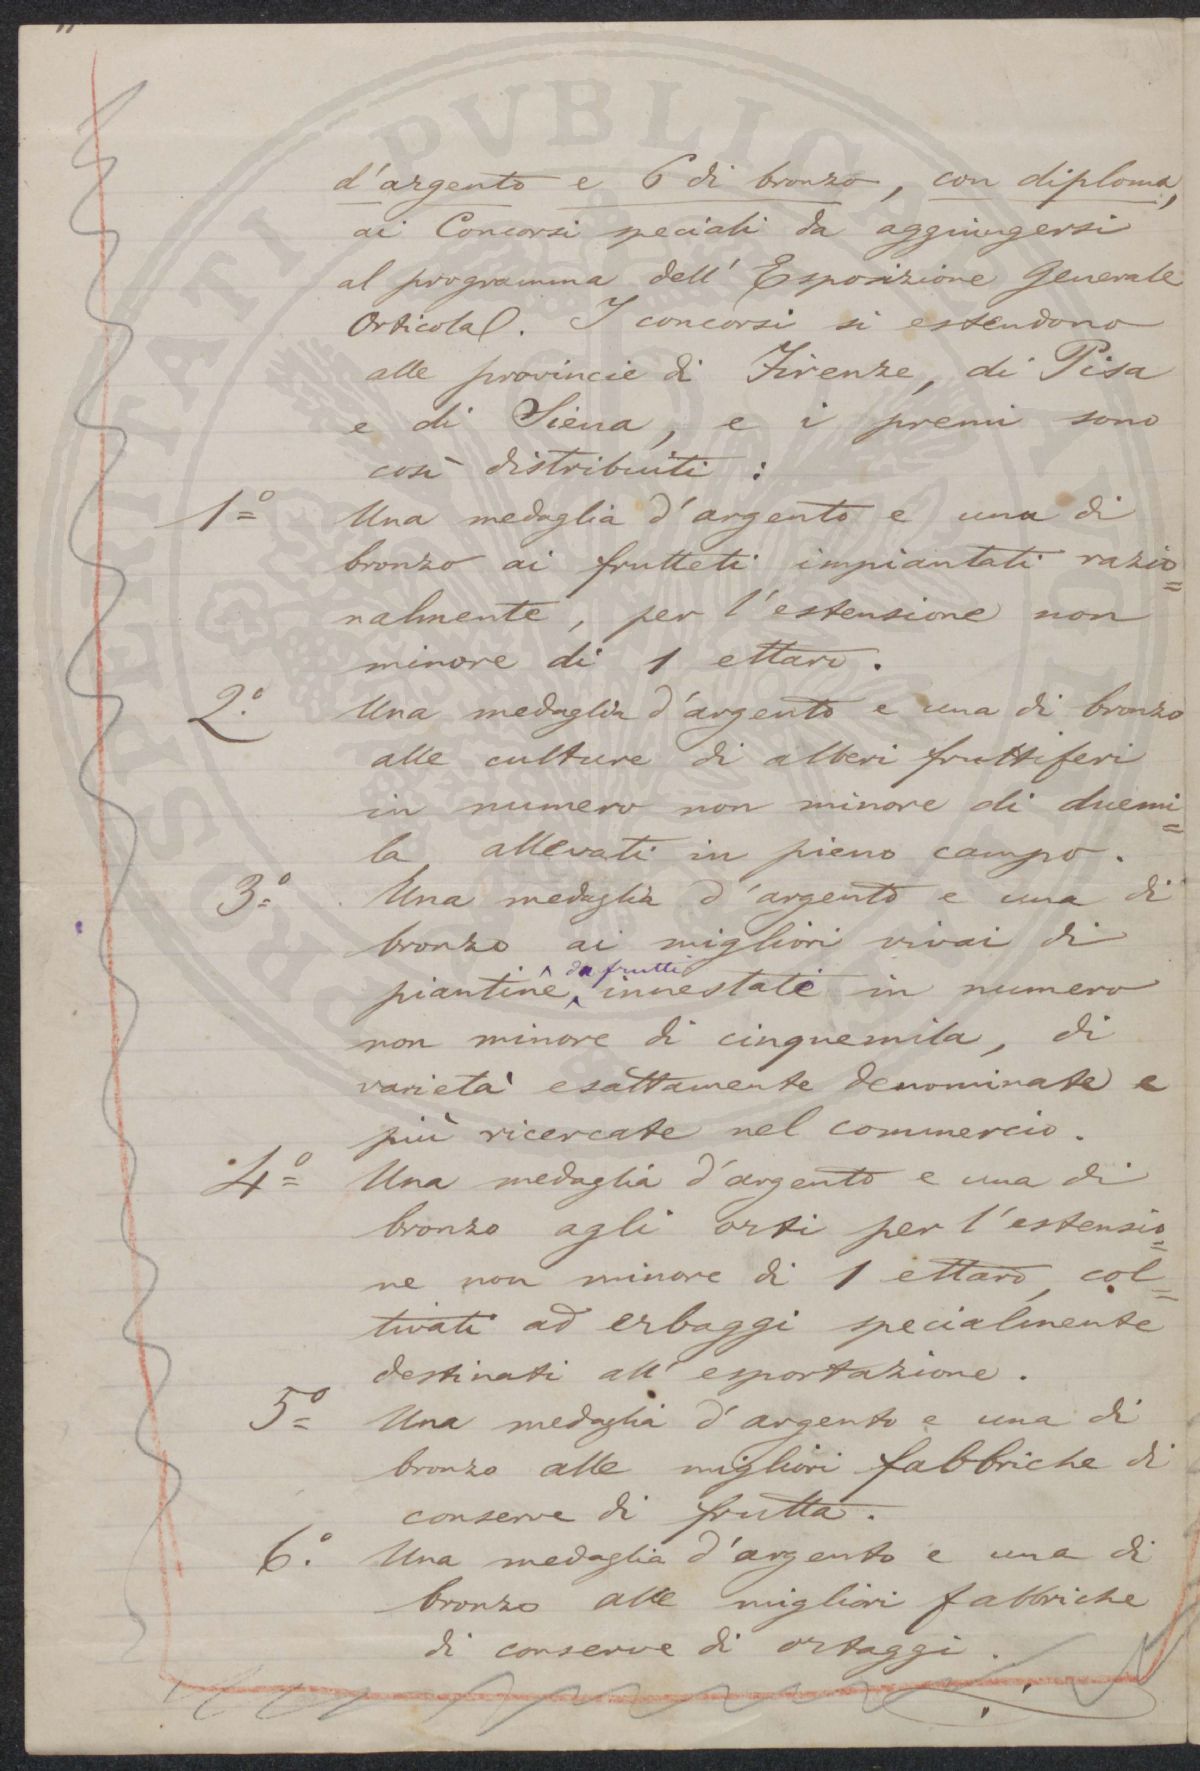 d'argento e 6 di bronzo, con diploma,
ai Concorsi speciali da aggiungersi
al programma dell' Esposizione Generale
Orticola. I concorsi si estendono
alle provincie di Firenze, di Pisa
e di Siena, e i premi sono
così distribuiti :
1º= Una medaglia d'argento e una di
bronzo ai frutteti impiantati razio=
nalmente, per l'estensione non
minore di 1 ettaro.
2.º Una medaglia d'argento e una di bronzo
alle culture di alberi fruttiferi
in numero non minore di duemi=
la, allevati in pieno campo.
3º= Una medaglia d'argento e una di
bronzo ai migliori vivai di
piantine da frutti innestate in numero
non minore di cinquemila, di
varietà esattamente denominate e
più ricercate nel commercio.
4º= Una medaglia d'argento e una di
bronzo agli orti per l'estensio=
ne non minore di 1 ettaro, col=
tivati ad erbaggi specialmente
destinati all' esportazione.
5º= Una medaglia d'argento e una di
bronzo alle migliori fabbriche di
conserve di frutta.
6.º Una medaglia d'argento e una di
bronzo alle migliori fabbriche
di conserve di ortaggi.